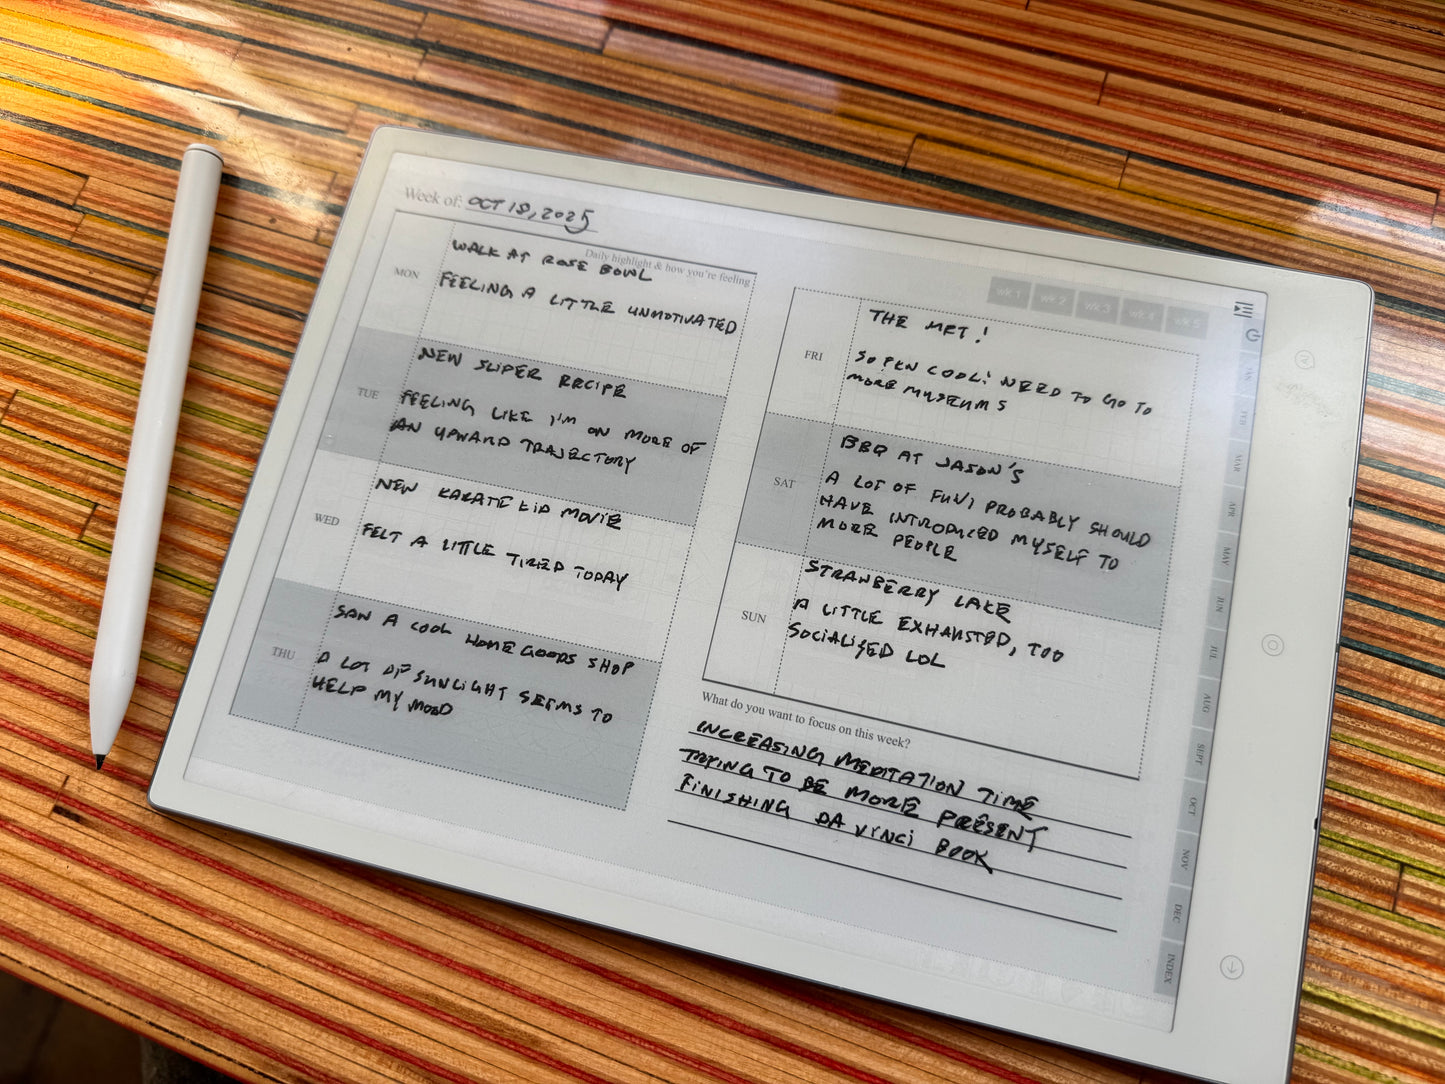 Week of: OCT 18, 2025
Daily highlight & how you're feeling
MON
WALK AT ROSE BOWL
FEELING A LITTLE UNMOTIVATED
TUE
NEW SLIPER RECIPE
FEELING LIKE I'M ON MORE OF
AN UPWARD TRAJECTORY
WED
NEW KARATE KID MOVIE
FELT A LITTLE TIRED TODAY
THU
SAW A COOL HOME GOODS SHOP
A LOT OF SUNLIGHT SEEMS TO
HELP MY MOOD
wk 1
wk 2
wk 3
wk 4
wk 5
FRI
THE MET!
COOL! NEED TO GO TO
MORE MUSEUMS
SAT
BBQ AT JASON'S
A LOT OF FUN, PROBABLY SHOULD
HAVE INTRODUCED MYSELF TO
MORE PEOPLE
SUN
STRANBERRY LAKE
A LITTLE EXHAUSTED, TOO
SOCIALIZED LOL
What do you want to focus on this week?
INCREASING MEDITATION TIME
TRYING TO BE MORE PRESENT
FINISHING DA VINCI BOOK
JAN
FEB
MAR
APR
MAY
JUN
JUL
AUG
SEPT
OCT
NOV
DEC
INDEX